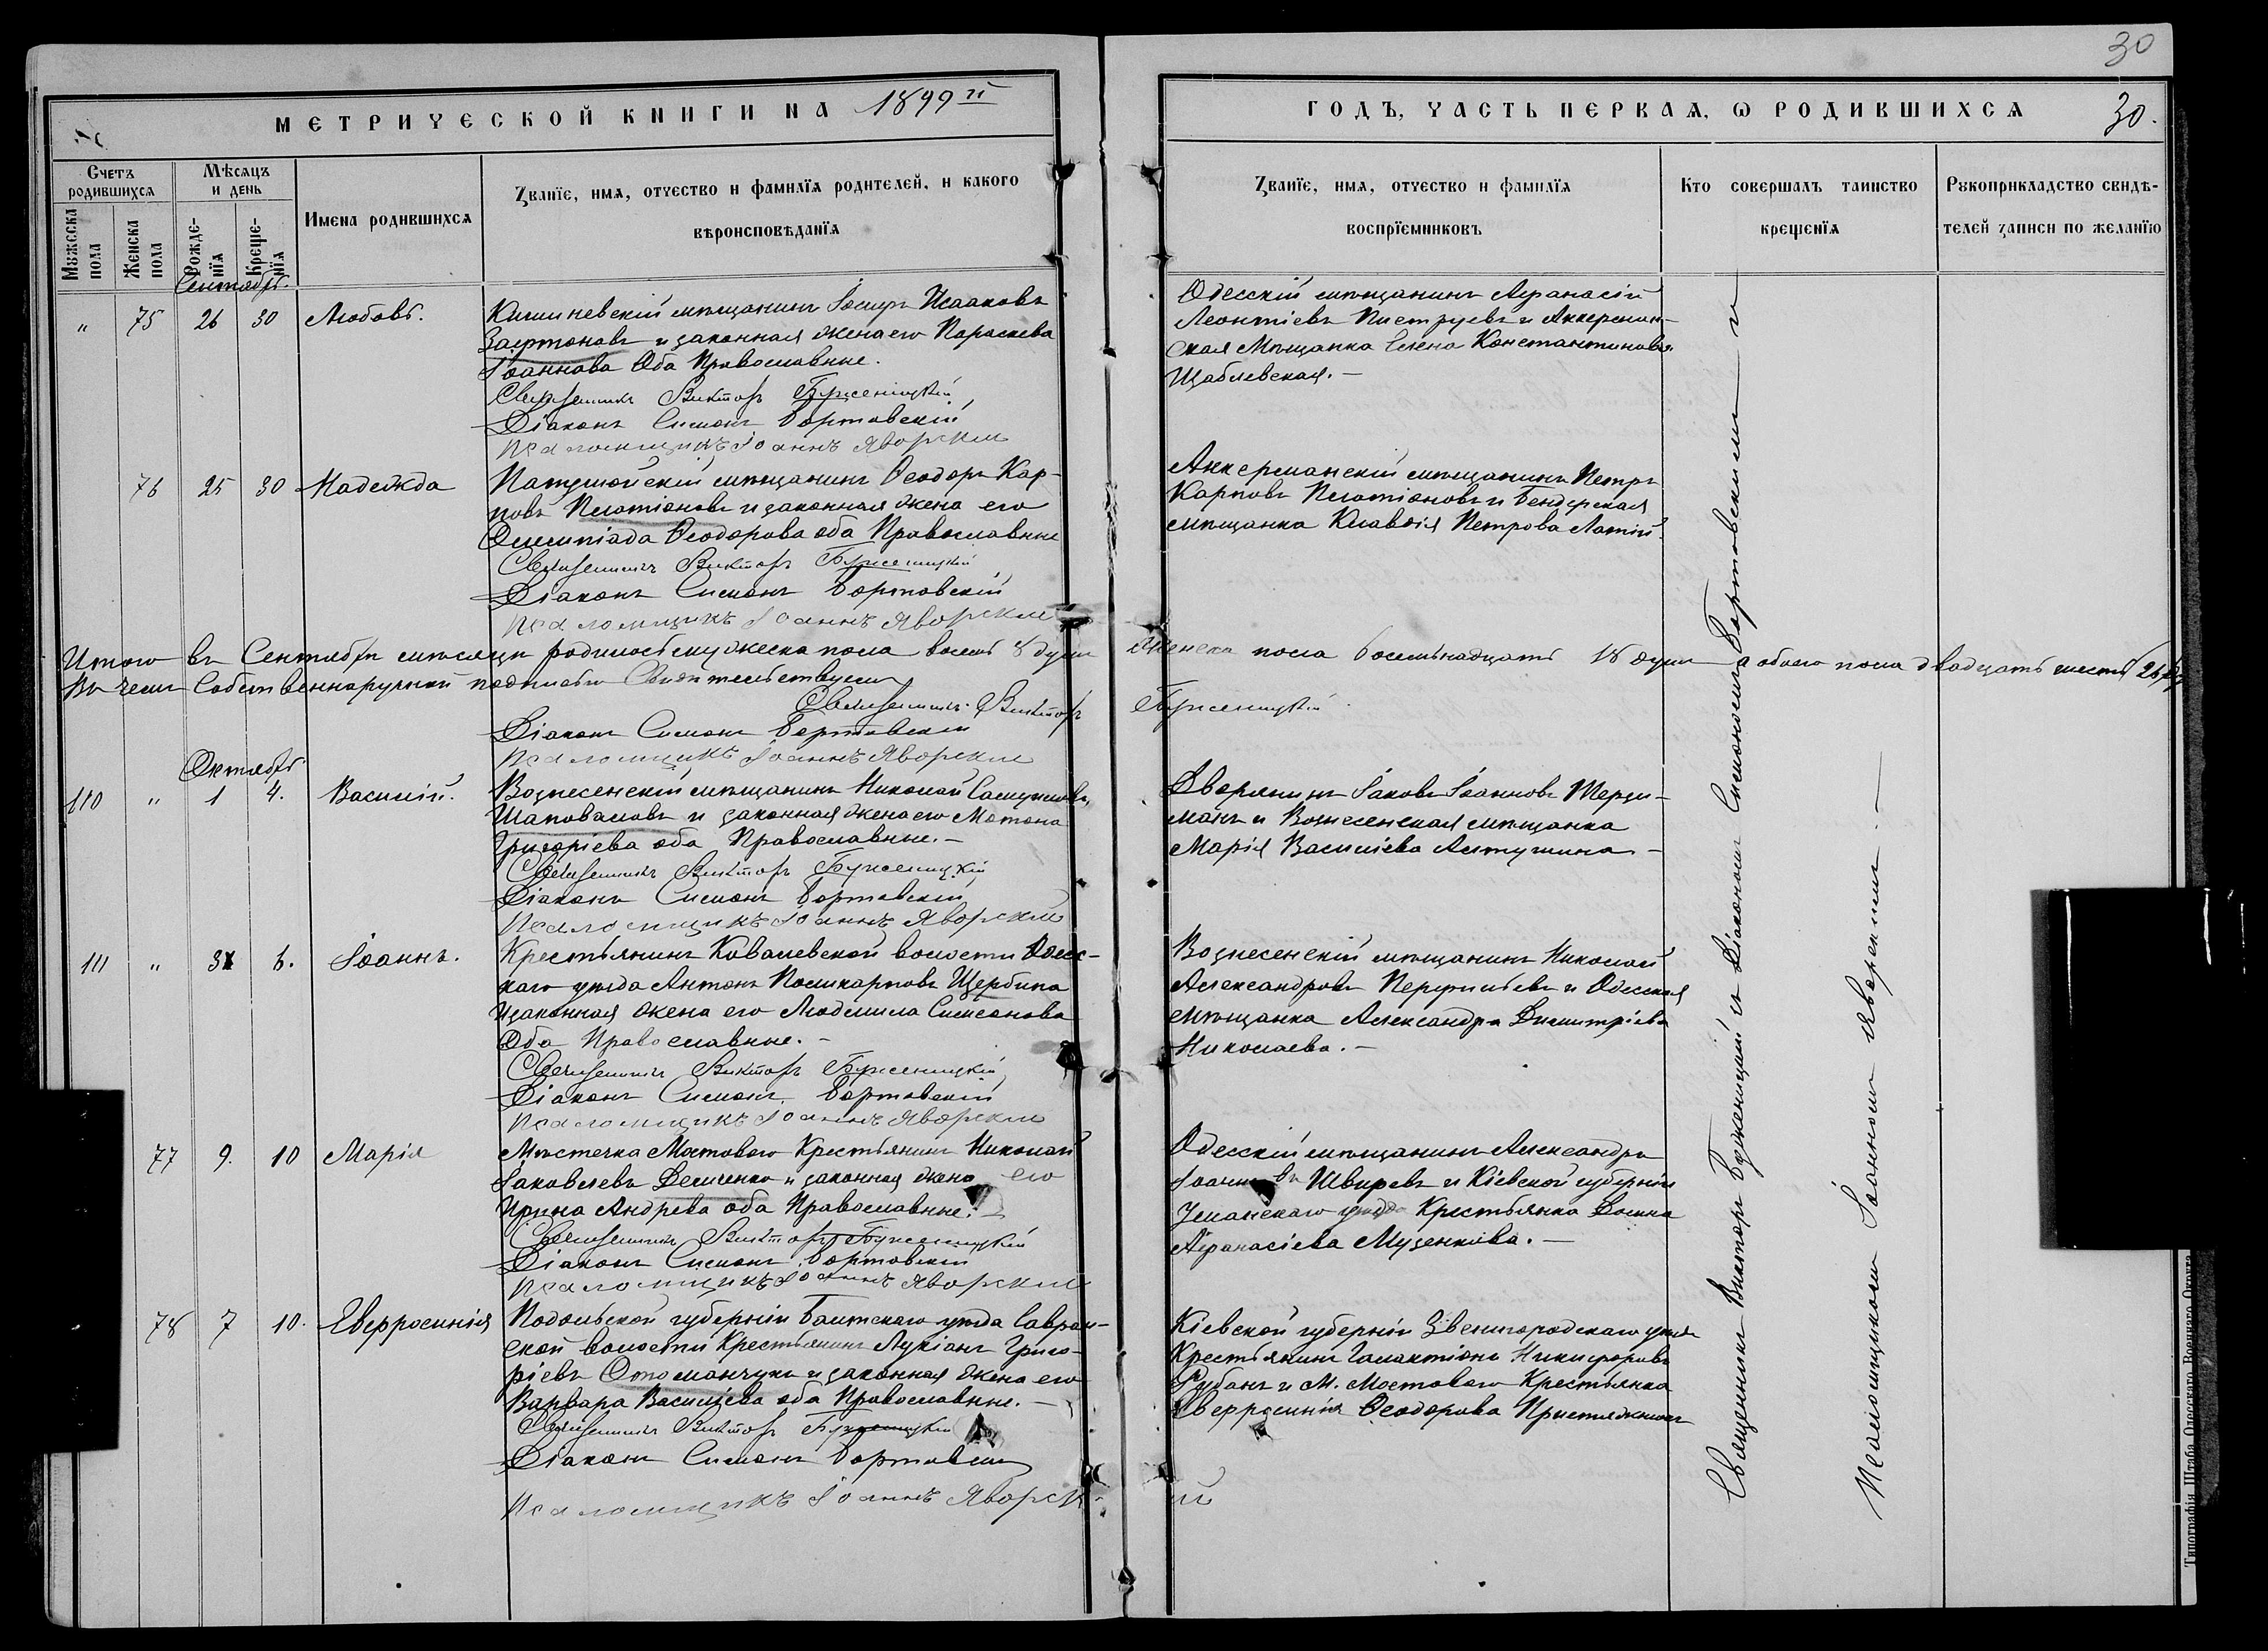 30
МЕТРИЧЕСКОЙ КНИГИ НА 1899 й
ГОДЪ, ЧАСТЬ ПЕРВАЯ, Ѡ РОДИВШИХСЯ 30.
Счетъ родившихся
Мужеска пола
Женска пола
Мѣсяцъ и день
Рожденїя
Крещенїя
Имена родившихся
Званїе, имя, отчество и фамилїя родителей, и какого
вѣроисповѣданїя
Званїе, имя, отчество и фамилїя
воспрїемниковъ
Кто совершалъ таинство
крещенїя
Рукоприкладство свидѣ-
телей записи по желанїю
Сентябрь.
" 75 26 30 Любовь.
Кишиневскій мѣщанинъ Іосифъ Исааковъ
и законная жена его Параскева
Іоаннова Оба Православные.
Священникъ Викторъ Буженицкій
Діаконъ Симонъ Бортовскій
Псаломщикъ Іоаннъ Яворскій
Одесскій мѣщанинъ Афанасій
Леонтіевъ и Аккерман-
ская Мѣщанка Елена Константинова
Щаблевская.-
76 25 30 Надежда
мѣщанинъ Ѳеодоръ Кар-
повъ Платоновъ и законная жена его
Олимпіада Ѳеодорова оба Православные
Священникъ Викторъ Буженицкій
Діаконъ Симонъ Бортовскій
Псаломщикъ Іоаннъ Яворскій
Аккерманскій мѣщанинъ Петръ
Карповъ и Бендерская
мѣщанка Клавдія Петрова
Итого въ Сентябрѣ мѣсяцѣ родилось мужеска пола восемь 8 душъ женска пола восемьнадцать 18 душъ а обоего пола двадцать шесть 26
Въ чемъ Собственноручной подписью Свидетельствуемъ
Священникъ Викторъ Буженицкій.
Діаконъ Симонъ Бортовскій
Псаломщикъ Іоаннъ Яворскій
Октябрь
110 " 1 4. Василій.
Вознесенскій мѣщанинъ Николай
Шаповаловъ и законная жена его Матрона
Григоріева оба Православные.-
Священникъ Викторъ Буженицкій
Діаконъ Симонъ Бортовскій
Псаломщикъ Іоаннъ Яворскій
Дворянинъ Іаковъ Іоанновъ Шерци-
манъ и Вознесенская мѣщанка
Марія Василіева
111 " 3 6. Іоаннъ.
Крестьянинъ Ковалевской волости Одес-
каго уѣзда Антонъ Поликарповъ Щербина
и законная жена его Людмила Симеонова
Оба Православные.-
Священникъ Викторъ Буженицкій
Діаконъ Симонъ Бортовскій
Псаломщикъ Іоаннъ Яворскій
Вознесенскій мѣщанинъ Николай
Александровъ Перфильевъ и Одесская
мѣщанка Александра Димитріева
Николаева.-
77 9. 10 Марія
Мѣстечка Мостоваго Крестьянинъ Николай
Іаковлевъ Демченко и законная жена его
Ирина Андрева оба Православные.-
Священникъ Викторъ Буженицкій
Діаконъ Симонъ Бортовскій
Псаломщикъ Іоаннъ Яворскій
Одесскій мѣщанинъ Александръ
Швыревъ и Кіевской губерніи
Уманскаго уѣзда Крестьянка Домна
Афанасіева Музенкова.-
78 7 10. Еверросинія
Подольской губерніи Балтскаго уѣзда Савран-
ской волости Крестьянинъ Лукіанъ Григо-
ріевъ Отоманчукъ и законная жена его
Варвара Василіева оба Православные.-
Священникъ Викторъ Буженицкій
Діаконъ Симонъ Бортовскій
Псаломщикъ Іоаннъ Яворскій
Кіевской губерніи Звенигородскаго уѣзда
Крестьянинъ Галактіонъ Никифоровъ
Рубанъ и М. Мостоваго Крестьянка
Еверросинія Ѳеодорова
Священникъ Викторъ Буженицкій съ Діакономъ Симономъ Бортовскимъ и
Псаломщикомъ Іоанномъ Яворскимъ.-
Типографія Штаба Одесскаго Военнаго Округа